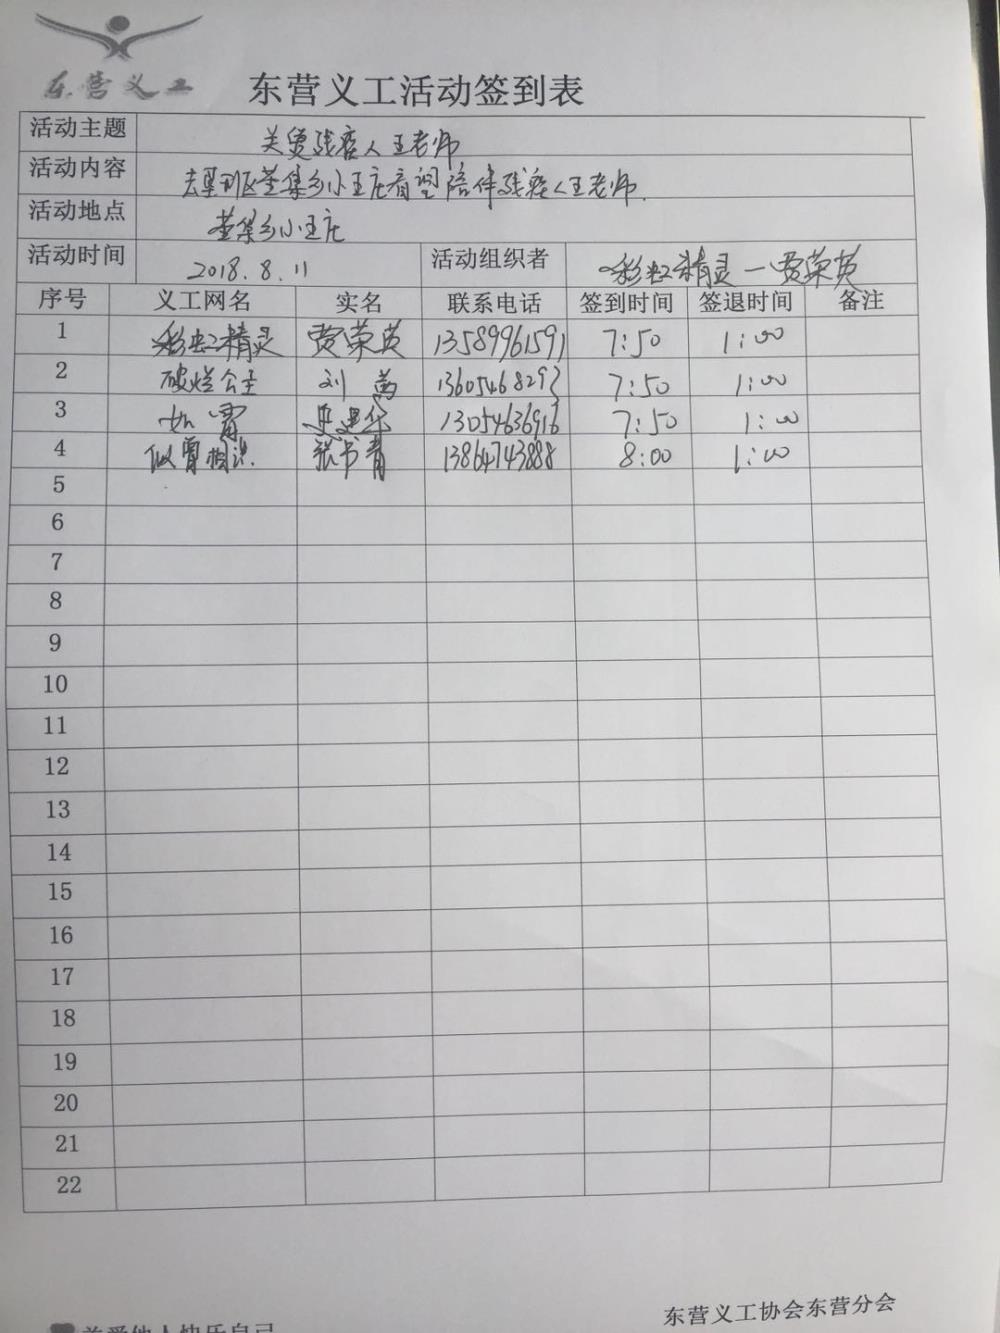 东营义工
东营义工活动签到表
活动主题 关爱残疾人王老师
活动内容 去垦利区董集乡小王庄看望陪伴残疾人王老师.
活动地点 董集乡小王庄
活动时间 2018.8.11 活动组织者 彩虹精灵—贾荣英
序号 义工网名 实名 联系电话 签到时间 签退时间 备注
1 彩虹精灵 贾荣英 13589961591 7:50 1:00
2 破烂公主 刘茜 13605468293 7:50 1:00
3 如霄 建华 13054636916 7:50 1:00
4 似曾相识. 张书青 13864743888 8:00 1:00
5
6
7
8
9
10
11
12
13
14
15
16
17
18
19
20
21
22
东营义工协会东营分会
关爱他人快乐自己